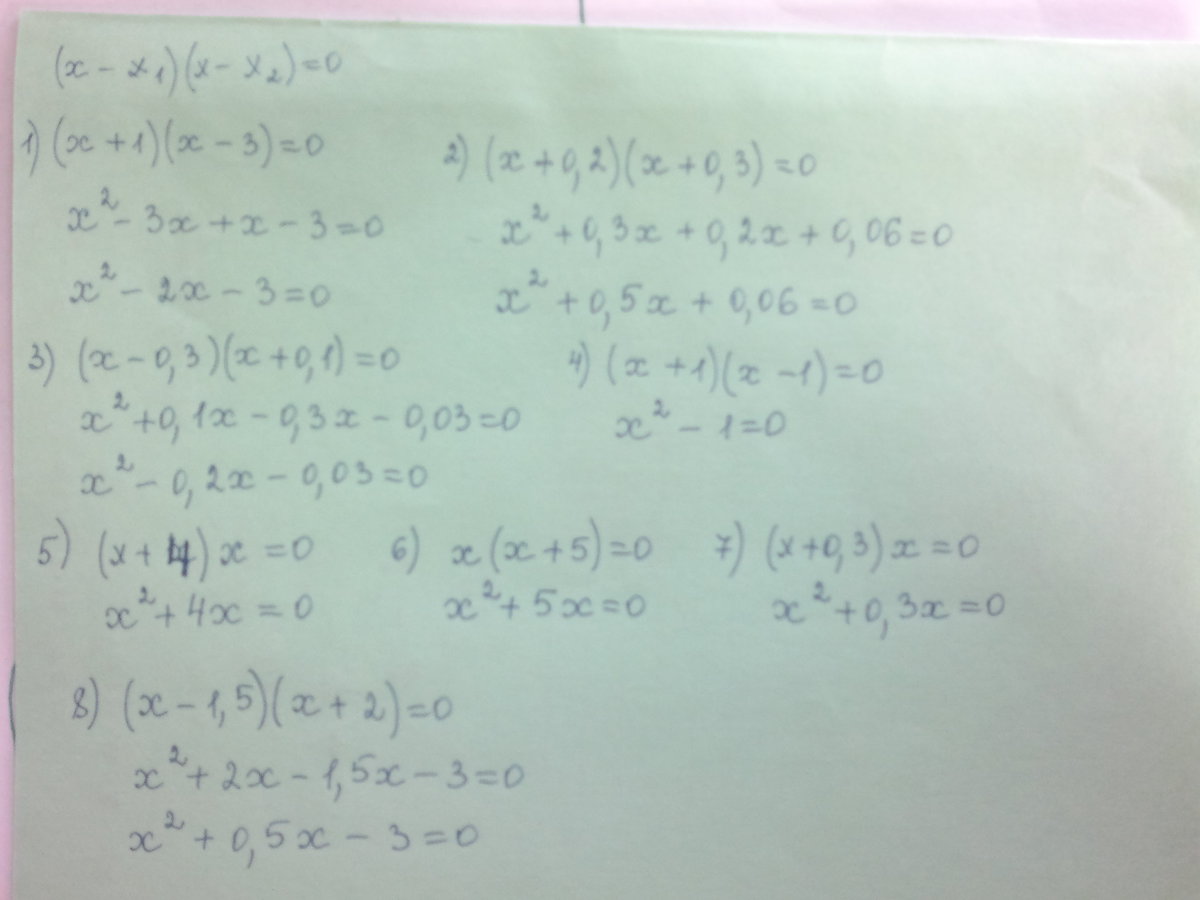 (x - x₁)(x - x₂) = 0
1) (x + 1)(x - 3) = 0
x² - 3x + x - 3 = 0
x² - 2x - 3 = 0
2) (x + 0,2)(x + 0,3) = 0
x² + 0,3x + 0,2x + 0,06 = 0
x² + 0,5x + 0,06 = 0
3) (x - 0,3)(x + 0,1) = 0
x² + 0,1x - 0,3x - 0,03 = 0
x² - 0,2x - 0,03 = 0
4) (x + 1)(x - 1) = 0
x² - 1 = 0
5) (x + 4)x = 0
x² + 4x = 0
6) x(x + 5) = 0
x² + 5x = 0
7) (x + 0,3)x = 0
x² + 0,3x = 0
8) (x - 1,5)(x + 2) = 0
x² + 2x - 1,5x - 3 = 0
x² + 0,5x - 3 = 0